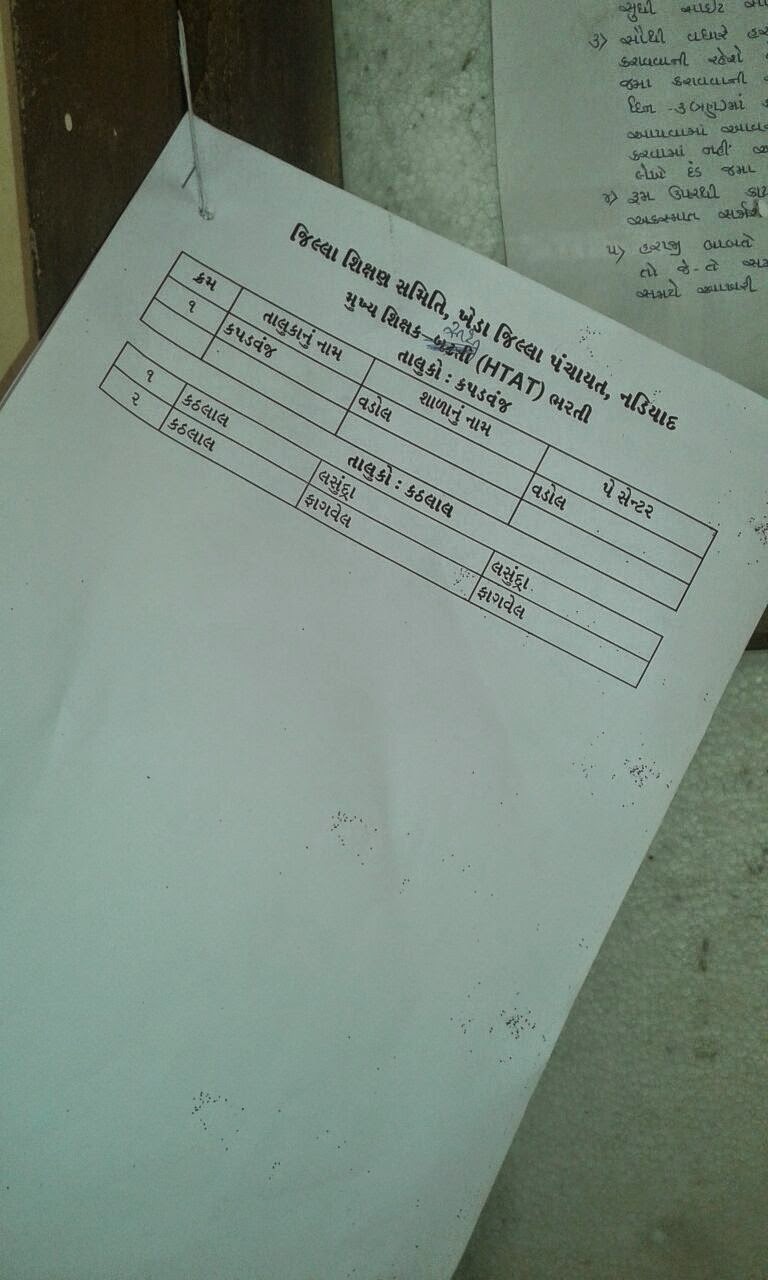 જિલ્લા શિક્ષણ સમિતિ, ખેડા જિલ્લા પંચાયત, નડિયાદ
મુખ્ય શિક્ષક (HTAT) ભરતી
તાલુકો : કપડવંજ
ક્રમ તાલુકાનું નામ શાળાનું નામ પે સેન્ટર
૧ કપડવંજ વડોલ વડોલ
તાલુકો : કઠલાલ
૧ કઠલાલ લસુંદ્રા લસુંદ્રા
૨ કઠલાલ ફાગવેલ ફાગવેલ
સુધી
૩) સૌથી વધારે
કરાવવાની રહેશે
જમા કરાવવાની
દિન -૩(ત્રણ)માં
આપવામાં
કરવામાં નહીં
દંડ જમા
રૂમ ઉપરથી
અકસ્માત
૫) હરાજી બાબતે
તો જે-તે
સમયે આખરી